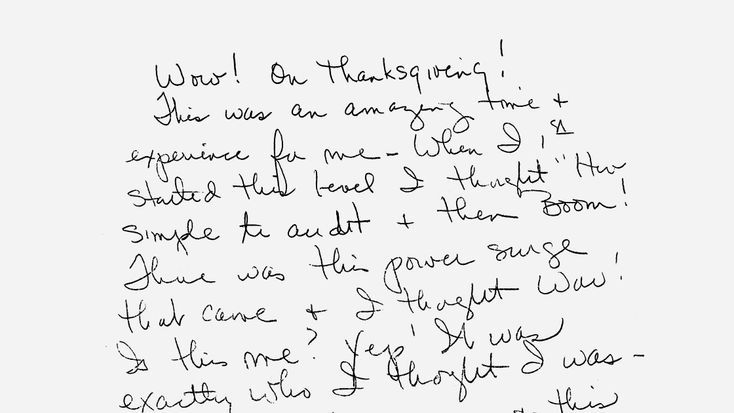 Wow! On Thanksgiving!
This was an amazing time +
experience for me - When I 1st
started this level I thought "How
simple to audit + then Boom!
There was this power surge
that came + I thought Wow!
Is this me? Yep! It was
exactly who I thought I was -
to this